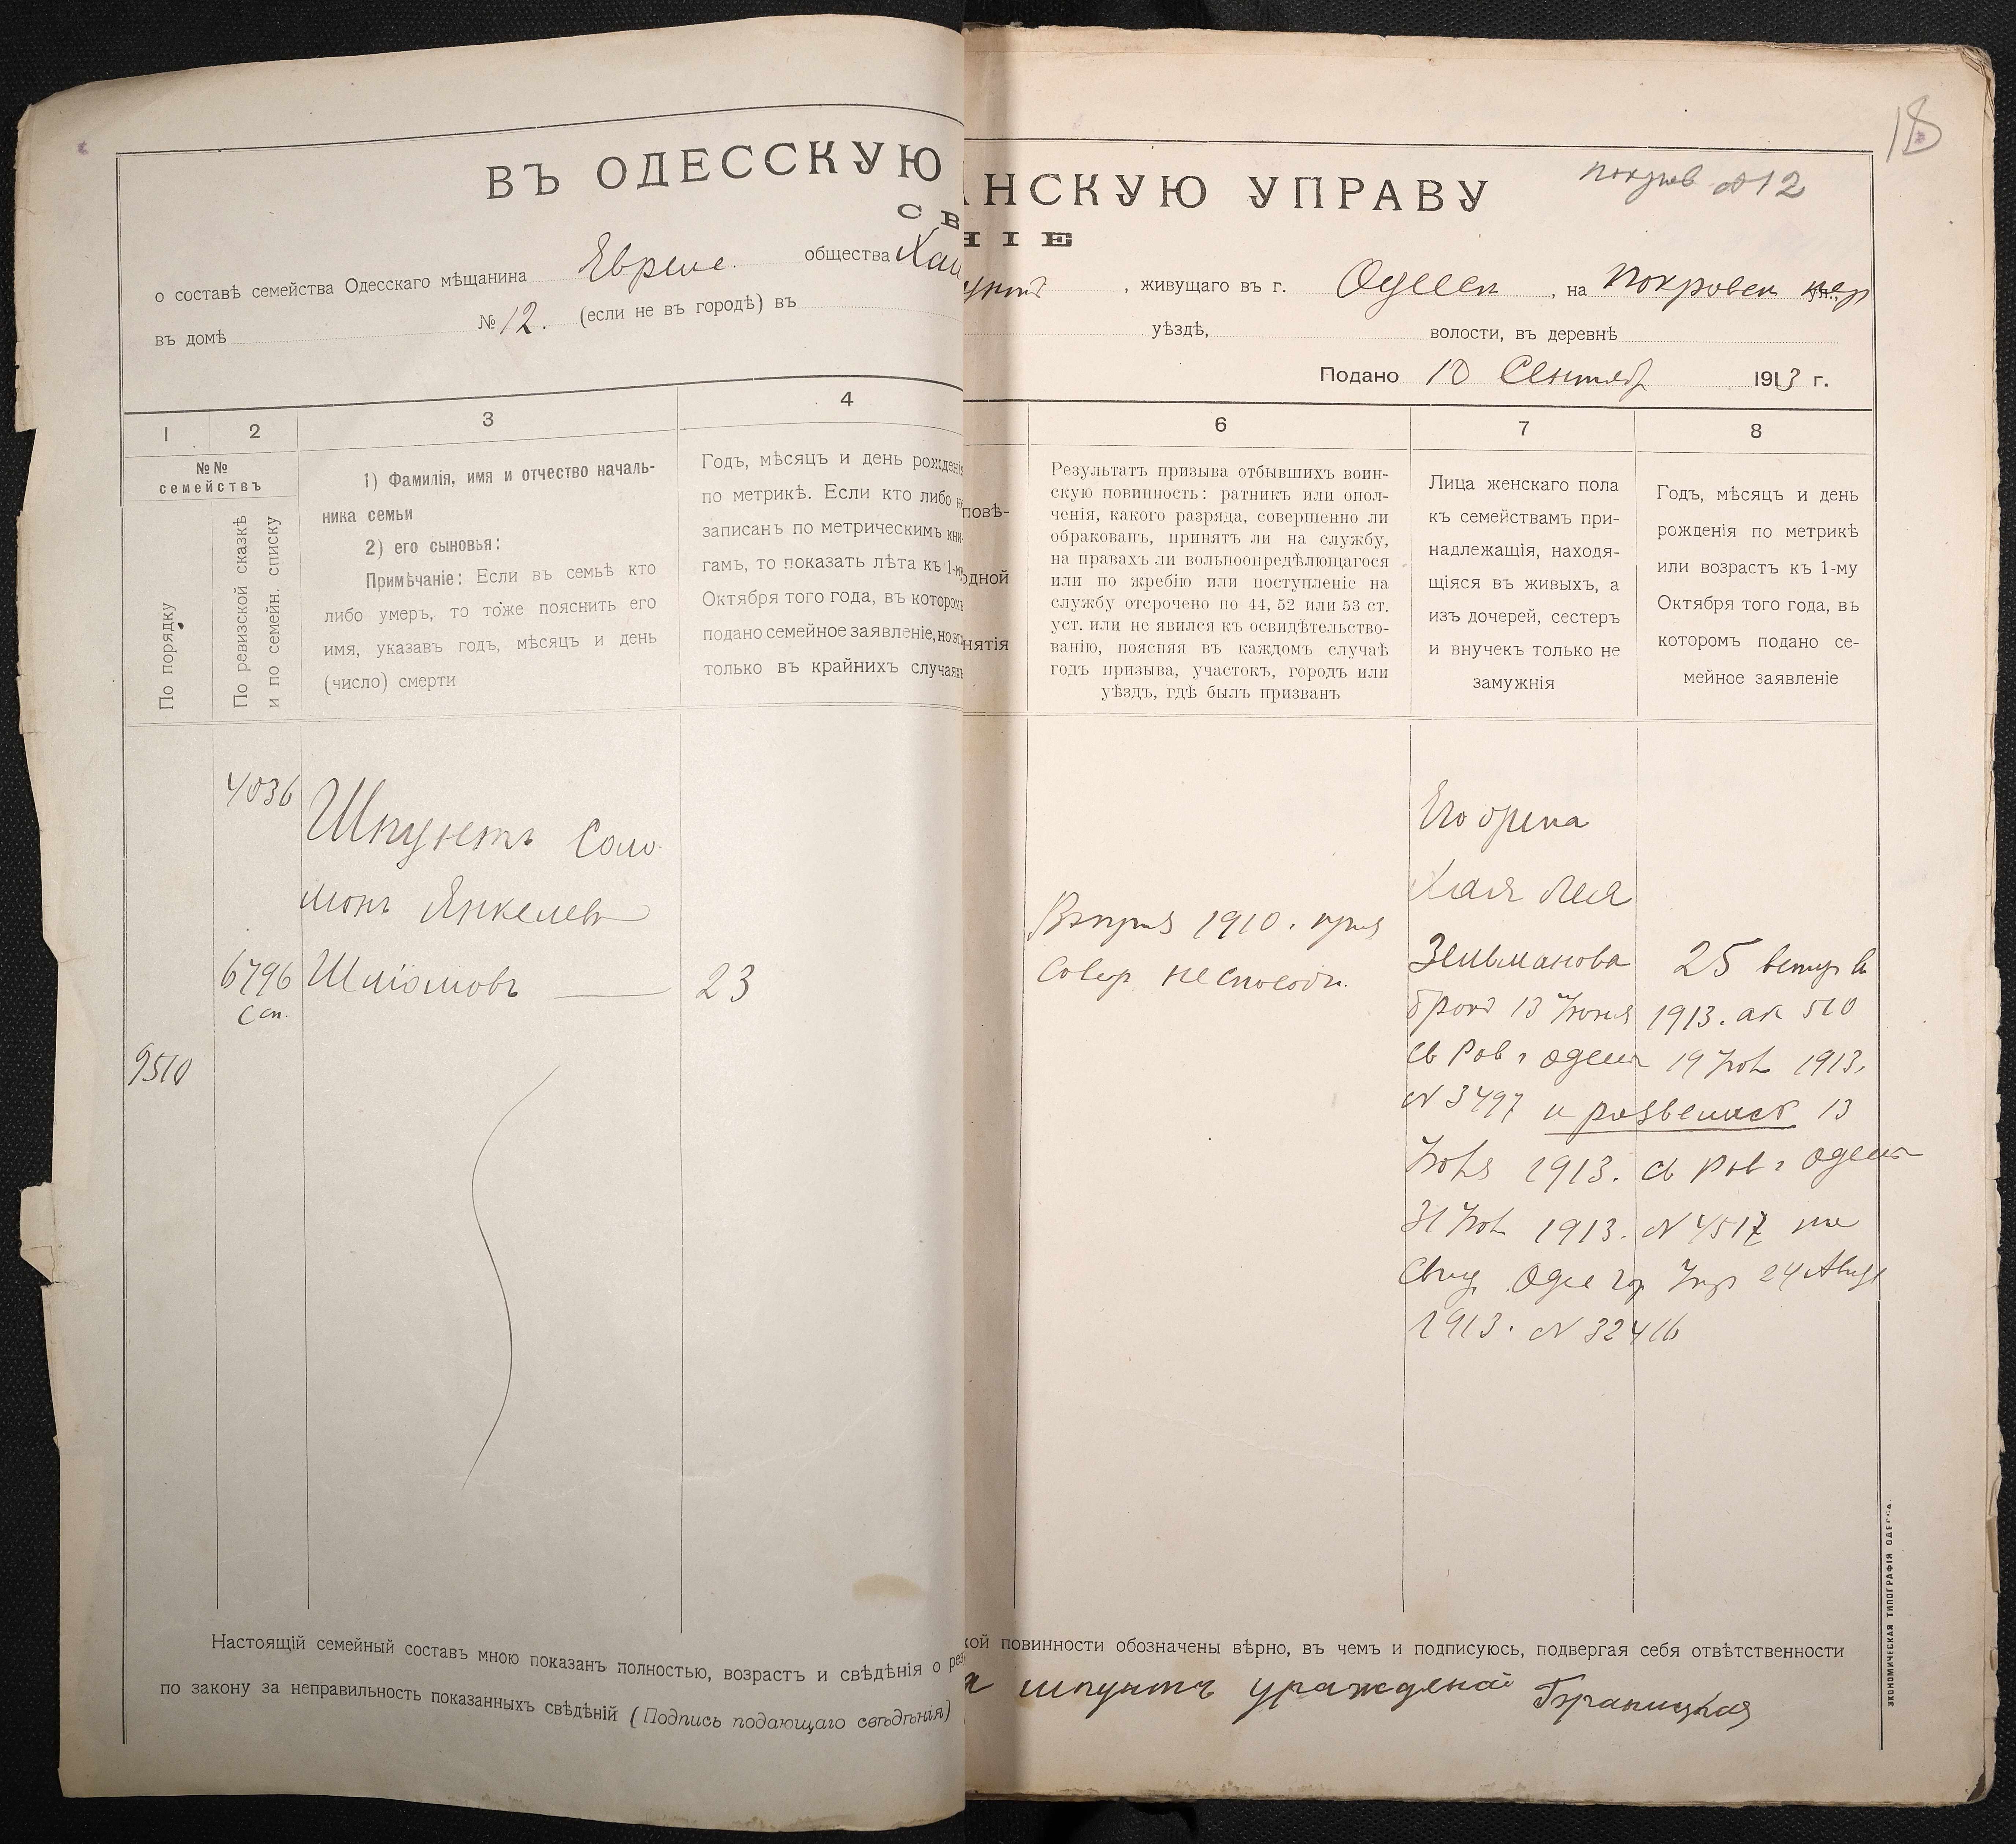 18
ВЪ ОДЕССКУЮ
АНСКУЮ УПРАВУ
№ 12
СВ
НІЕ
о составѣ семейства Одесскаго мѣщанина Еврейс. общества
, живущаго въ г. Одессѣ, на Покровск пер ул.,
въ домѣ № 12. (если не въ городѣ) въ
уѣздѣ, волости, въ деревнѣ
Подано 10 Сентяб 1913 г.
1
2
3
4
6
7
8
№№ семействъ
По порядку
По ревизской сказкѣ
и по семейн. списку
1) Фамилія, имя и отчество началь-
ника семьи
2) его сыновья:
Примѣчаніе: Если въ семьѣ кто
либо умеръ, то тоже пояснить его
имя, указавъ годъ, мѣсяцъ и день
(число) смерти
Годъ, мѣсяцъ и день рожденія
по метрикѣ. Если кто либо не
записанъ по метрическимъ кни-
гамъ, то показать лѣта къ 1-му
Октября того года, въ которомъ
подано семейное заявленіе, но это
только въ крайнихъ случаяхъ
повѣ-
одной
нятія
Результатъ призыва отбывшихъ воин-
скую повинность: ратникъ или опол-
ченія, какого разряда, совершенно ли
обракованъ, принятъ ли на службу,
на правахъ ли вольноопредѣлющагося
или по жребію или поступленіе на
службу отсрочено по 44, 52 или 53 ст.
уст. или не явился къ освидѣтельство-
ванію, поясняя въ каждомъ случаѣ
годъ призыва, участокъ, городъ или
уѣздъ, гдѣ былъ призванъ
Лица женскаго пола
къ семействамъ при-
надлежащія, находя-
щіяся въ живыхъ, а
изъ дочерей, сестеръ
и внучекъ только не
замужнія
Годъ, мѣсяцъ и день
рожденія по метрикѣ
или возрастъ къ 1-му
Октября того года, въ
которомъ подано се-
мейное заявленіе
4036 Шпунтъ Соло-
монъ Янкелев
6796 Шліомовъ — 23
Сп.
9510
1910. приз
совер неспособн.
Хая Лея
Зельманова 25 вступ въ
бракъ 13 Іюня 1913. ак 510
св Рав г Одессы 19 Іюл 1913.
№ 3497 и развелись 13
Іюля 1913. св Рав г Одессы
31 Іюл 1913. № 4517
Свид Одес гор Упр 24 Авгус
1913. № 32416
Настоящій семейный составъ мною показанъ полностью, возрастъ и свѣдѣнія о рез
кой повинности обозначены вѣрно, въ чемъ и подписуюсь, подвергая себя отвѣтственности
по закону за неправильность показанныхъ свѣдѣній (Подпись подающаго свѣдѣнія)
шпунтъ
ЭКОНОМИЧЕСКАЯ ТИПОГРАФІЯ ОДЕССА.